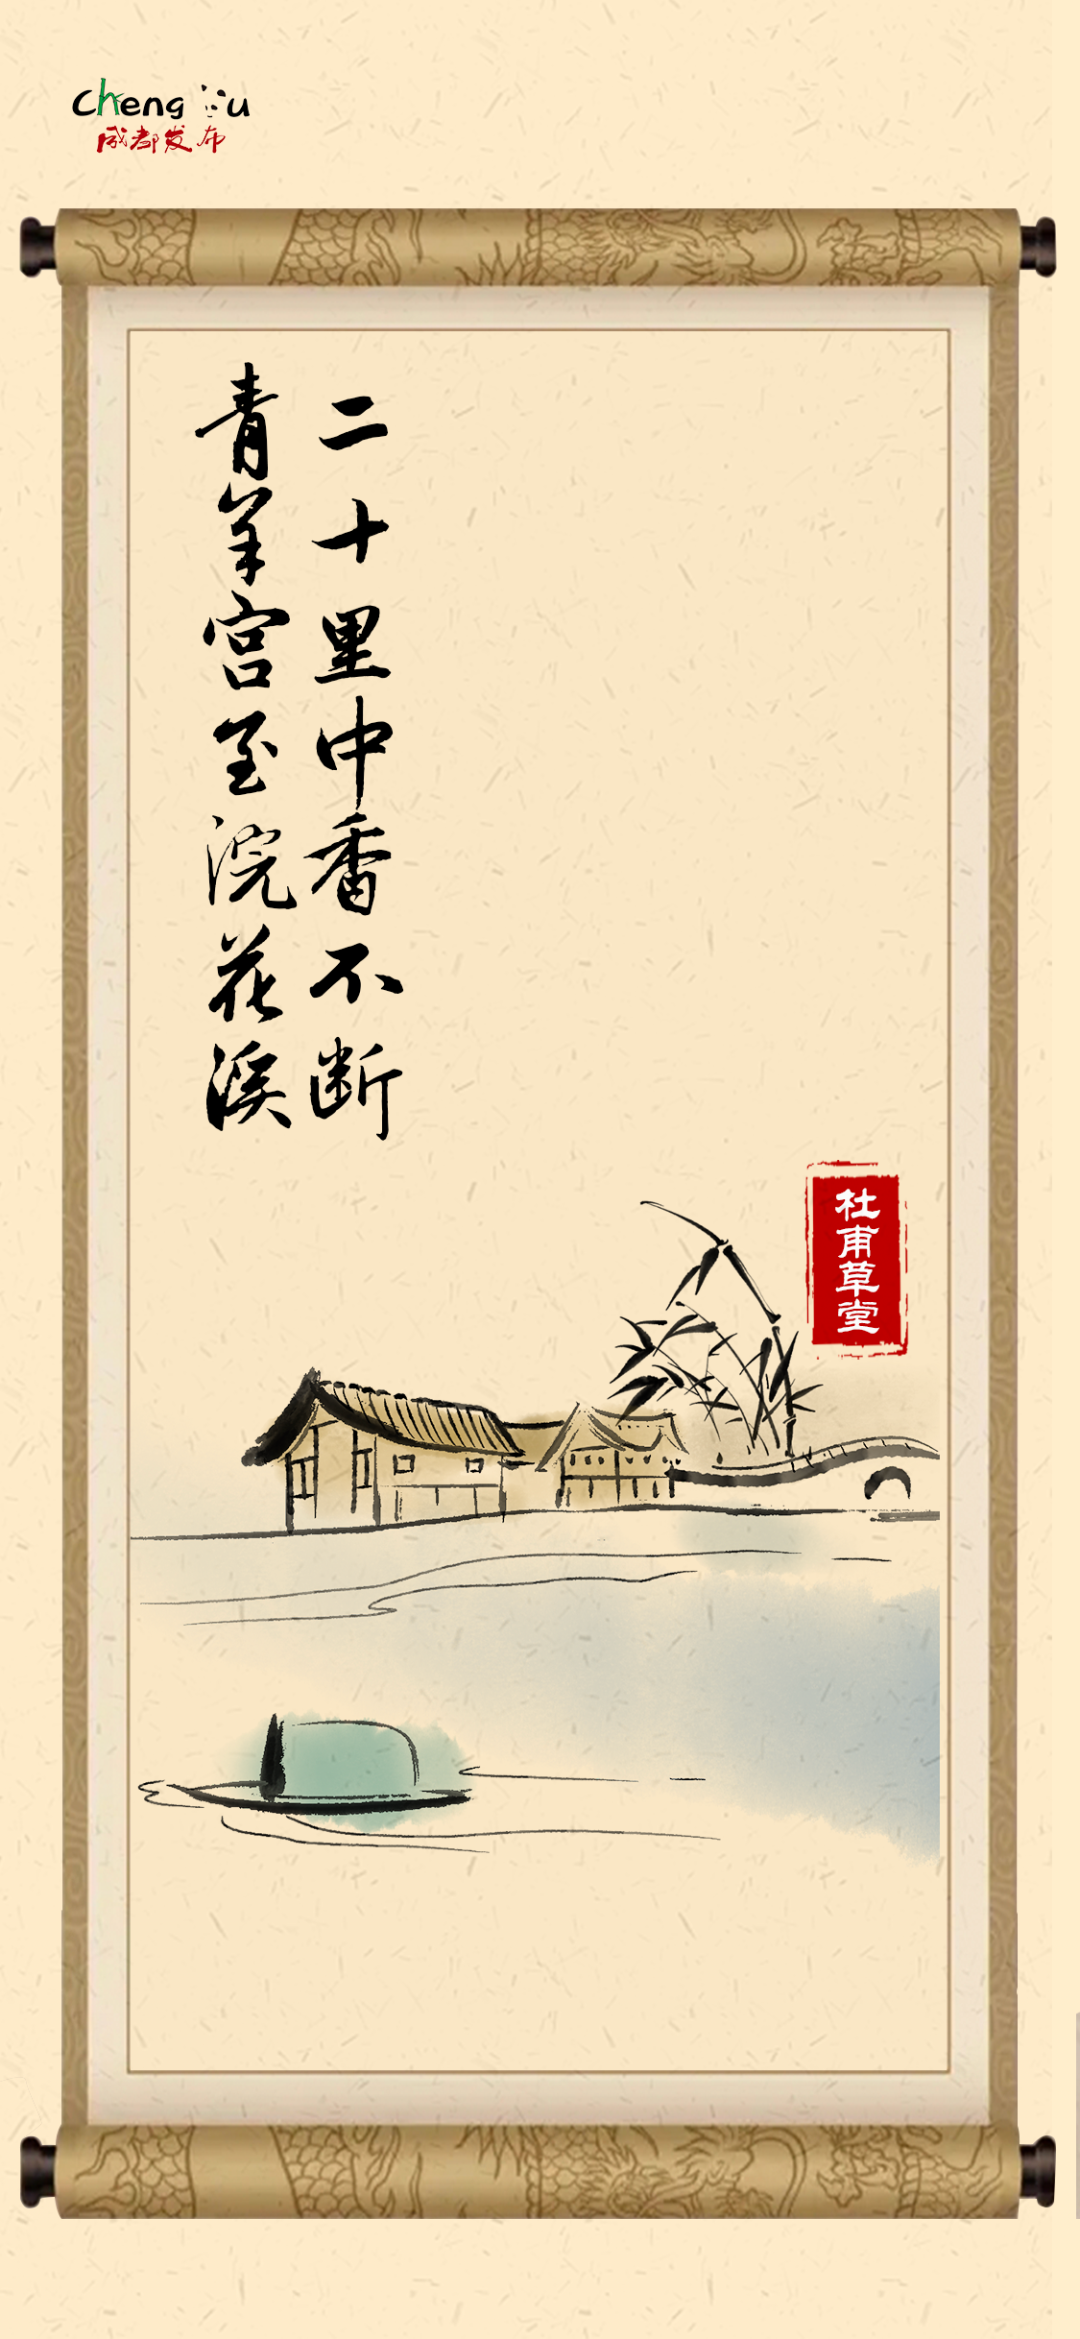 Cheng u
成都发布
二十里中香不断
青羊宫至浣花溪
杜甫草堂